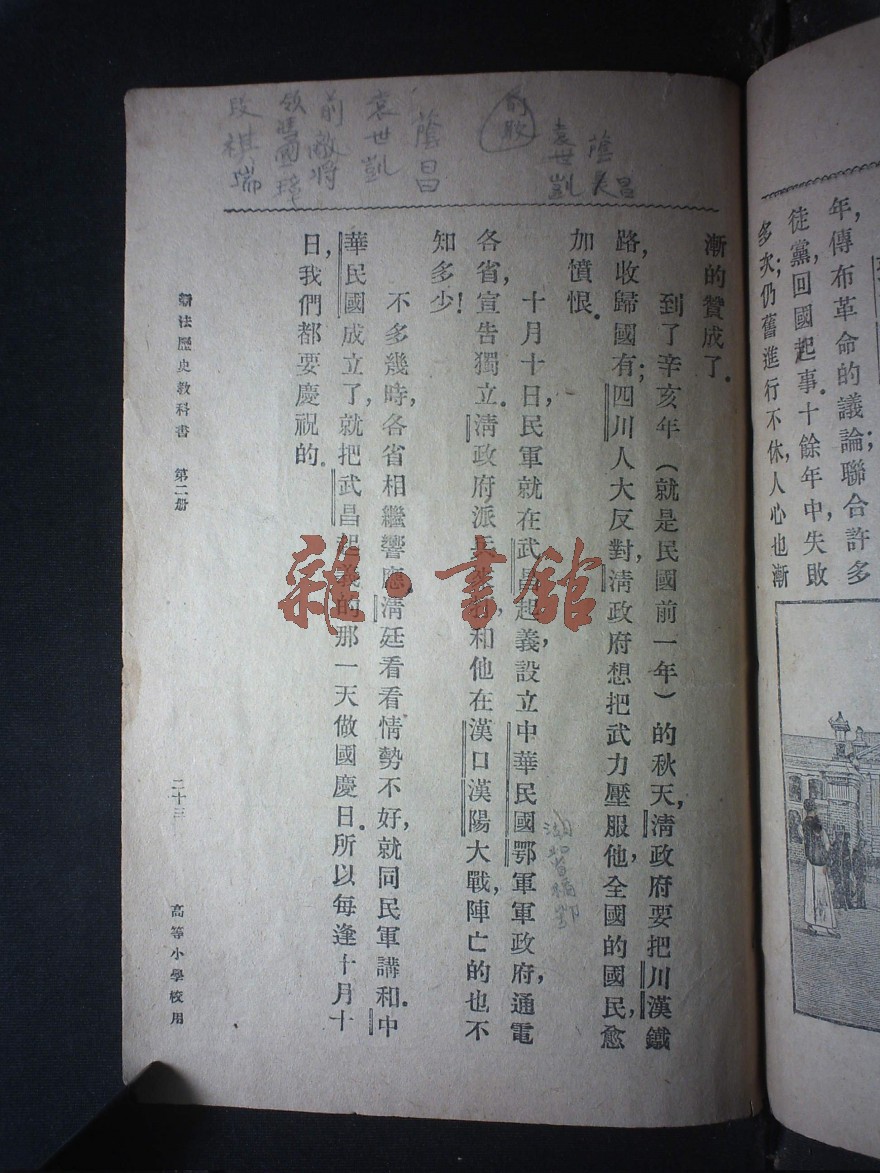 年，傳布革命的議論；聯合許多
徒黨，回國起事。十餘年中，失敗
多次；仍舊進行不休，人心也漸
漸的贊成了。
到了辛亥年（就是民國前一年）的秋天，清政府要把川漢鐵
路，收歸國有；四川人大反對，清政府想把武力壓服他，全國的國民，愈
加憤恨。
十月十日，民軍就在武昌起義，設立中華民國鄂軍軍政府，通電
各省，宣告獨立。清政府派兵來，和他在漢口漢陽大戰，陣亡的也不
知多少！
不多幾時，各省相繼響應，清廷看看情勢不好，就同民軍講和。中
華民國成立了，就把武昌起義的那一天做國慶日。所以每逢十月十
日，我們都要慶祝的。
新法歷史教科書 第二册 二十三 高等小學校用
蔭昌
袁世凱
蔭昌
袁世凱
前敵將
領馮國璋
段祺瑞
雜·書館